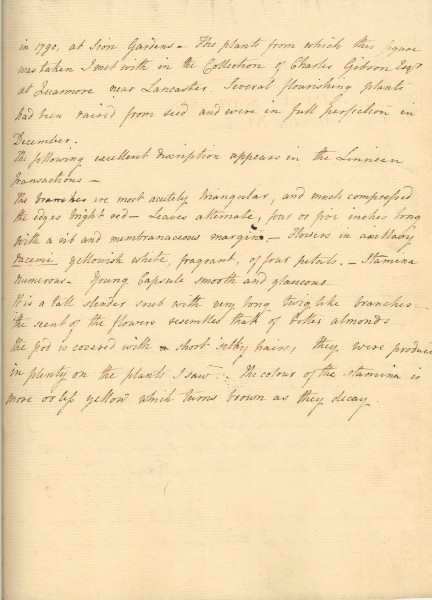 in 1790, at Sion Gardens – The plants from which this figure
was taken I met with in the Collection of Charles Gibson Esqr
at Quarmore near Lancaster. Several flourishing plants
had been raised from seed and were in full perfection in
December.
The following excellent discription appears in the Linnean
Transactions –
The branches are most acutely triangular, and much compressed
the edges bright red – Leaves alternate, four or five inches long
with a rib and membranaceous margin. – Flowers in axillary
racemi yellowish white, fragrant, of four petals. – Stamina
numerous – Young Capsule smooth and glaucous
It is a tall slender srub with very long twig like branches –
the scent of the flowers resembles that of bitter almonds
the pod is covered with short silky hairs, they were produce
in plenty on the plants I saw. The colour of the stamina is
more or less yellow which turns brown as they decay.